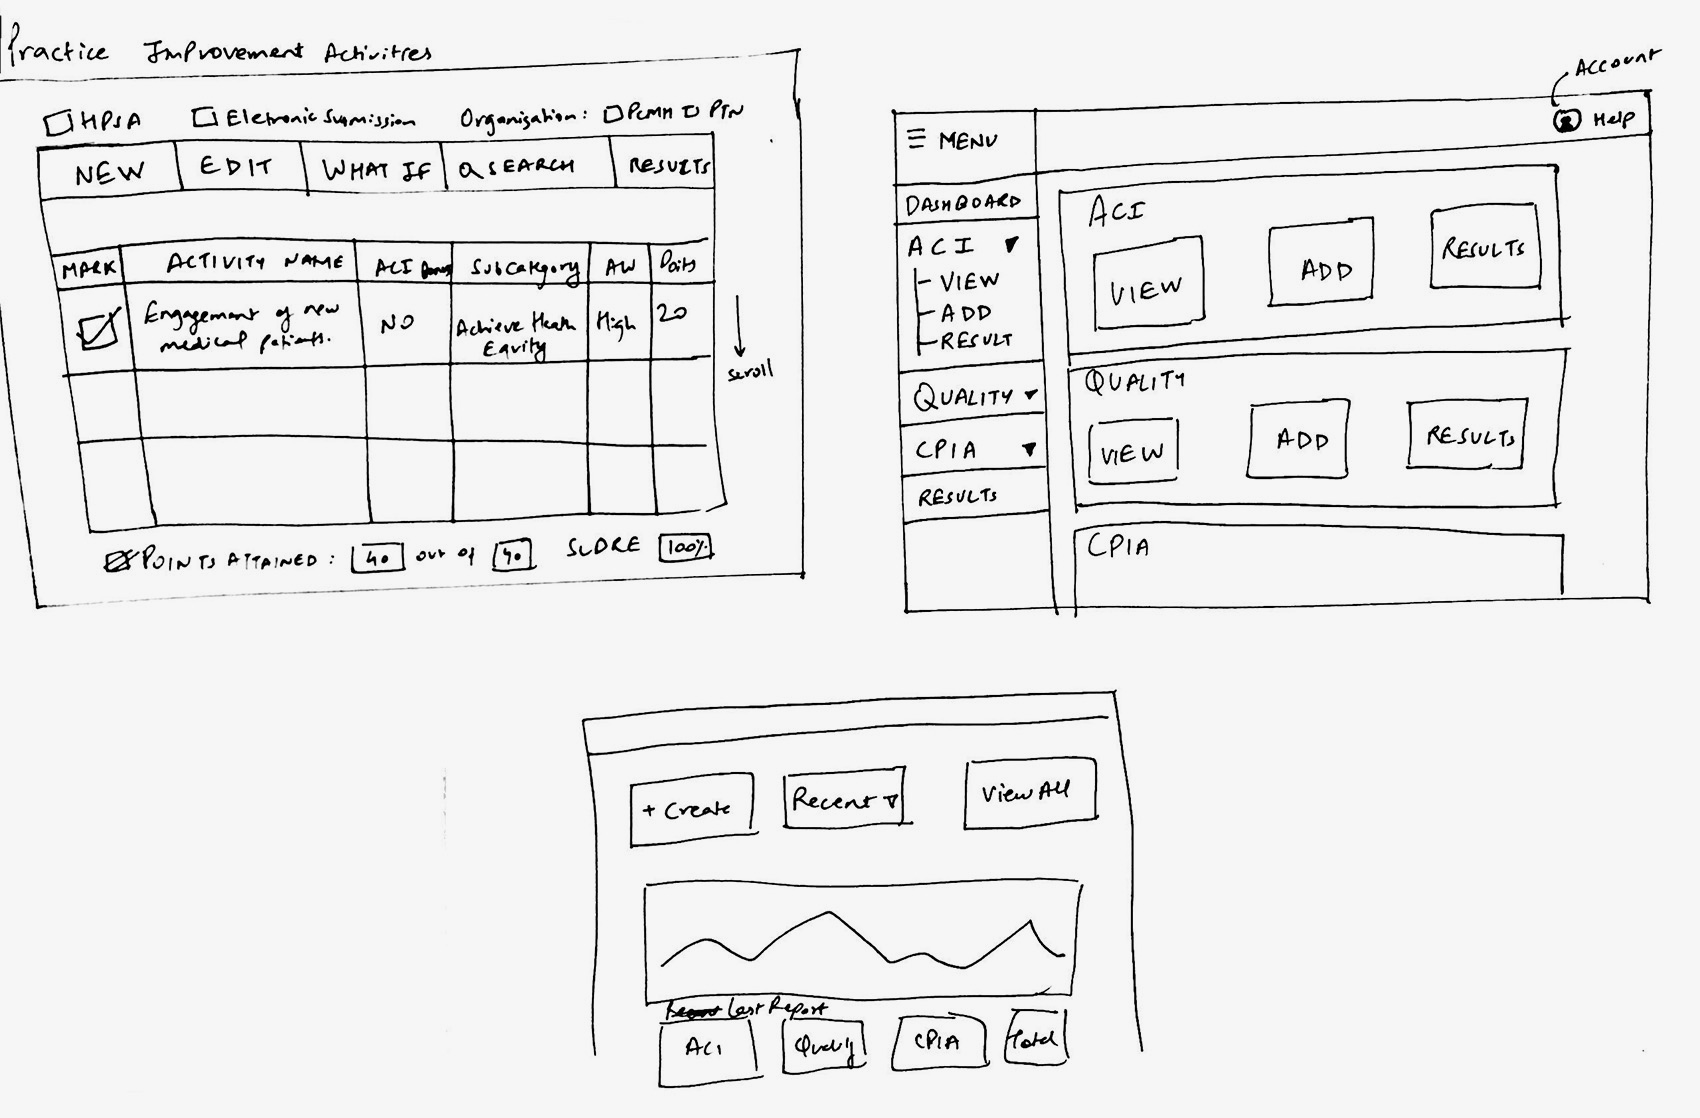 Practice Improvement Activities
HPSA Eletronic Submission Organisation: PCMH PTN
NEW EDIT WHAT IF SEARCH RESULTS
MARK ACTIVITY NAME ACI Subcategory AW Points
Engagement of new
medical patients.
NO
Achieve Heath
Equity
High
20
scroll
POINTS ATTAINED: 40 out of 40 SCORE 100%
Account
MENU
Help
DASHBOARD
ACI
VIEW
ADD
RESULT
QUALITY
CPIA
RESULTS
ACI
VIEW ADD RESULTS
QUALITY
VIEW ADD RESULTS
CPIA
+ Create Recent View All
Last Report
ACI Quality CPIA Total